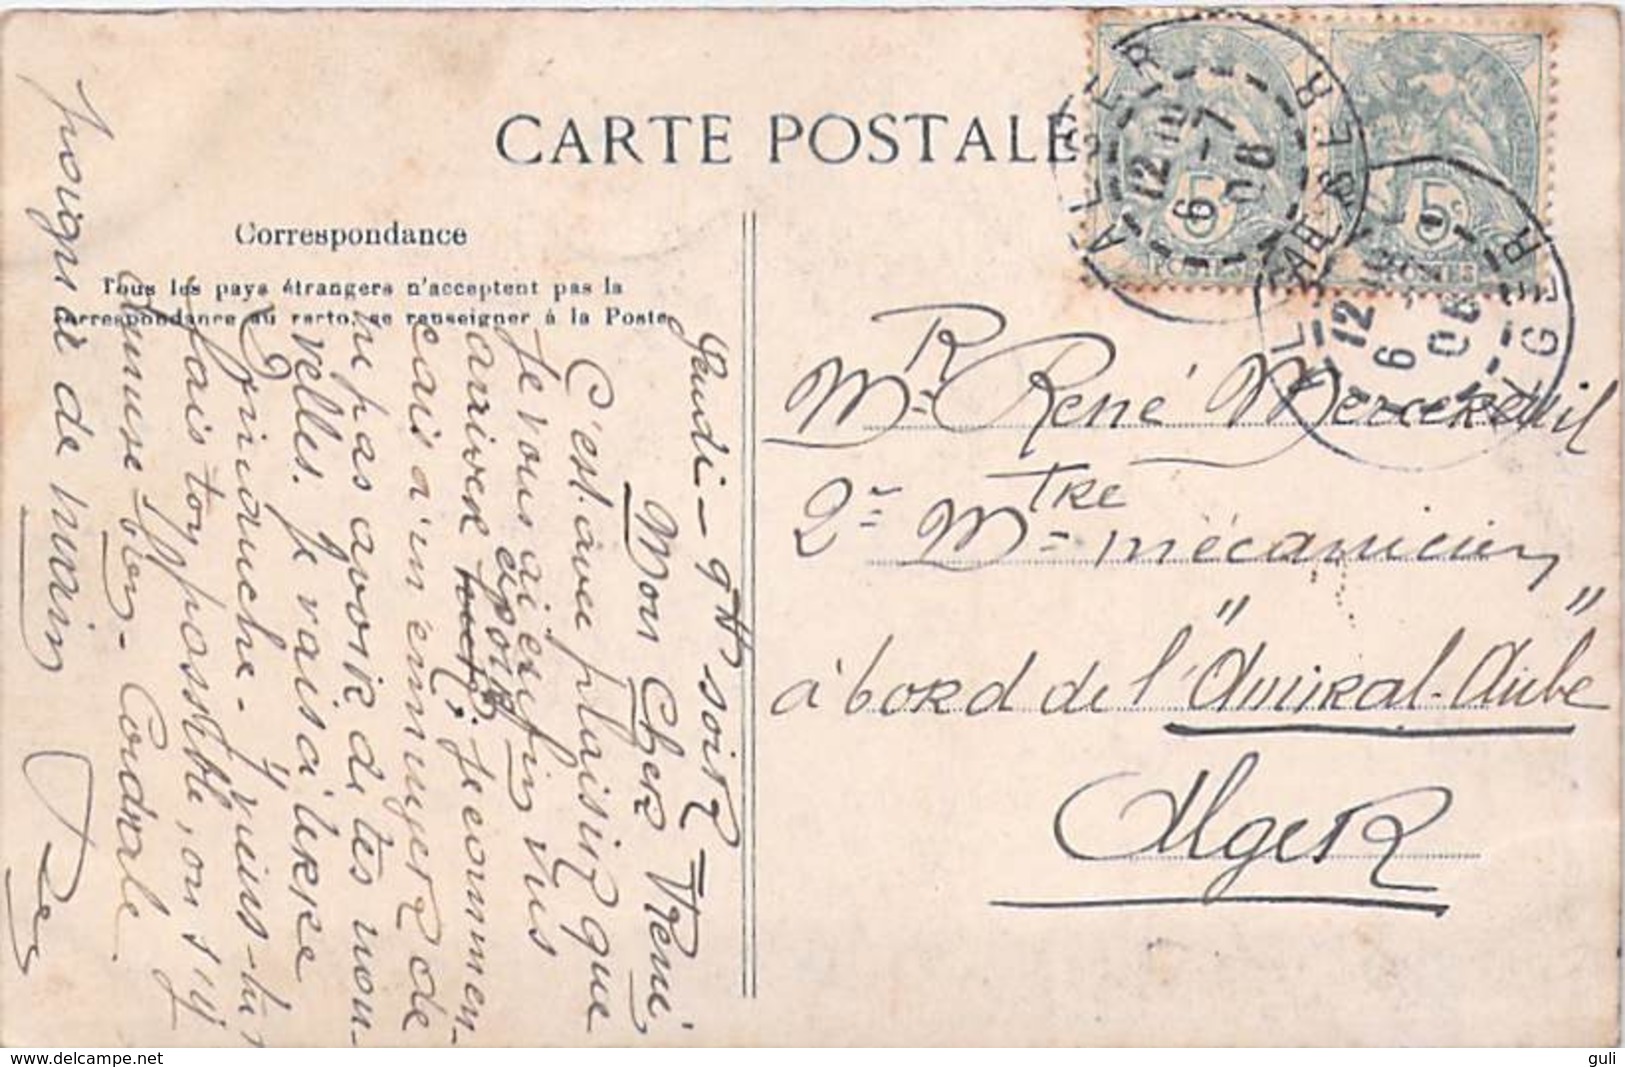 CARTE POSTALE
Correspondance
Tous les pays étrangers n'acceptent pas la
correspondance au recto, se renseigner à la Poste.
ALGER
12
6-7
08
ALGER
ALGER
12
6
08
ALGER
5c
POSTES
5c
POSTES
Mr René
2e Mtre mécanicien
à bord de l'"Amiral-Aube"
Alger
9H soir
Mon Cher René,
C'est avec plaisir que
je vous ai enfin vus
arriver à bon port; je commen-
çais à m'ennuyer de
ne pas avoir de tes nou-
velles. Je vais à terre
Dimanche. y viens-tu?
fais ton possible, on s'y
amuse bien. Cordiale
poignée de main
delcampe.net
guli